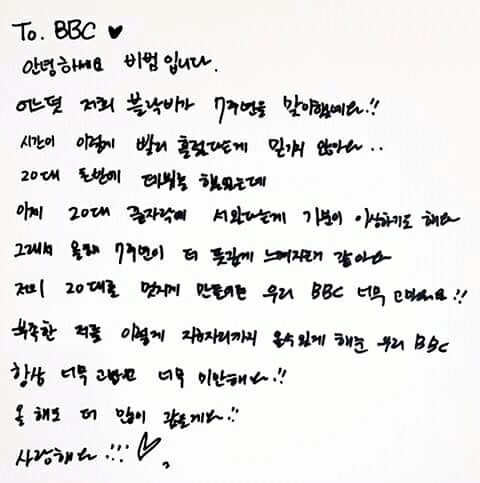 To. BBC ♥
안녕하세요 비범입니다.
어느덧 저희 블락비가 7주년을 맞이했네요.!!
시간이 이렇게 빨리 흘렀다는게 믿기지 않아요..
20대 초반에 데뷔를 했었는데
이제 20대 끝자락에 서있다는게 기분이 이상하기도 해요
그래서 올해 7주년이 더 뜻깊게 느껴지는것 같아요
저의 20대를 멋지게 만들어준 우리 BBC 너무 고마워요!!
부족한 저를 이렇게 지금자리까지 올수있게 해준 우리 BBC
항상 너무 고맙고 너무 미안해요.!!
올 해도 더 많이 감을게요.!!
사랑해요.!!! ♡